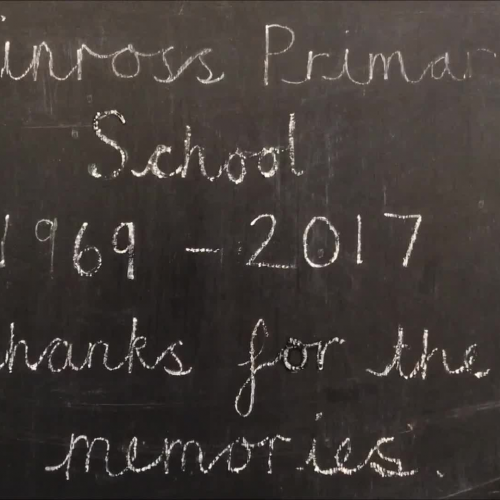 inross Primar
School
1969 - 2017
hanks for the
memories.